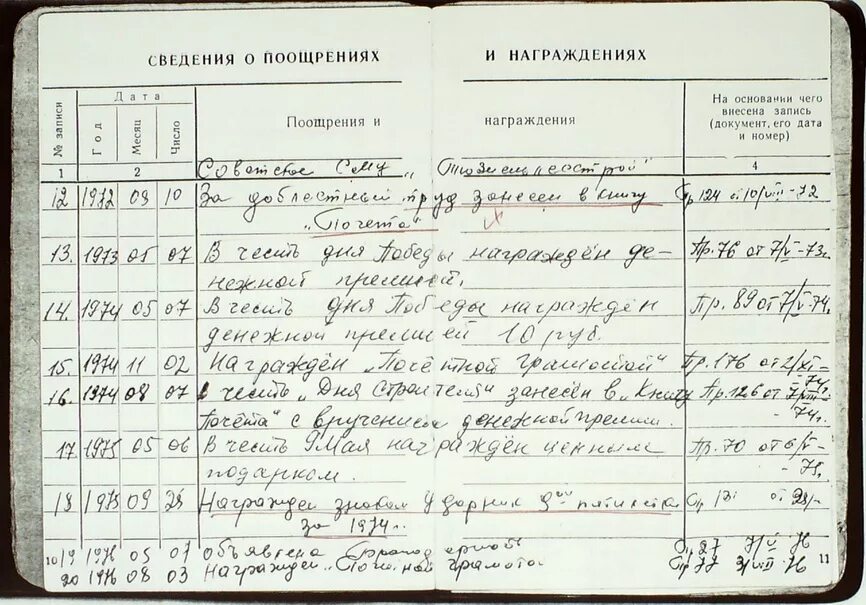 СВЕДЕНИЯ О ПООЩРЕНИЯХ И НАГРАЖДЕНИЯХ
№ записи
Дата
Год
Месяц
Число
Поощрения и награждения
На основании чего внесена запись (документ, его дата и номер)
1 2 4
Советское
12 1972 08 10 За доблестный труд занесен в книгу Пр 124 от 10/VIII-72
"Почета"
13. 1973 05 07 В честь дня Победы награждён де- Пр. 76 от 7/V-73г.
нежной премией.
14. 1974 05 07 В честь дня Победы награждён Пр. 89 от 7/V-74г.
денежной премией 10 руб.
15. 1974 11 02 Награждён „Почётной грамотой" Пр. 176 от 2/XI-
-74г.
16. 1974 08 07 в честь „Дня строителя" занесён в „Книгу Пр. 126 от 7/VIII-
Почёта" с вручением денежной премии. -74г.
17. 1975 05 06 В честь 9 Мая награждён ценным Пр. 70 от 6/V-
подарком. - 75г.
18 1975 09 28 Награжден знаком Ударник 9ой пятилетки Пр от 28/-
за 1974г.
10 19 1976 05 07 объявлена благодарность Пр 27 7/V-76 11
20 1976 08 03 Награжден „Почетной грамотой Пр 77 3/VIII-76